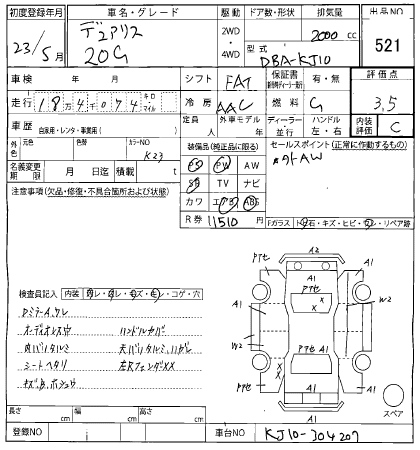 初度登録年月 車名・グレード 駆動 ドア数・形状 排気量 出品NO
23/5月 デュアリス 20G 2WD・4WD 2000 cc 521
型式 DBA-KJ10
車検 年 月 シフト FAT 保証書 有・無 評価点
走行 18万4千074 キロ・マイル 冷房 AAC 燃料 G 3.5
車歴 自家用・レンタ・事業用( ) 定員 人 外車モデル 年 ディーラー 並行 ハンドル 左・右 内装評価 C
外色 元色 色替 カラーNO K23
装備品(純正品に限る) セールスポイント(正常に作動するもの)
名義変更期限 月 日迄 積載 t PS PW AW 外AW
注意事項(欠品・修復・不具合箇所および状態) SR TV ナビ
カワ エアB ABS
R券 11510 円
Fガラス
石・キズ・ヒビ・
・リペア跡
検査員記入 内装
・コゲ・穴
DミラーA,ケレ
オーディオレス
ハンドルカバー
内バリタルミ
天バリタルミ,ハガレ
シートヘタリ
左RフェンダXX
A2
A1
Pアセ
A1
A1
Pアセ
A1
X
X
A1
W2
W2
Pアセ A1
A1
Pアセ
X
X
Pアセ
A1
A1
スペア
長さ cm 幅 cm 高さ cm
登録NO 車台NO KJ10-304207